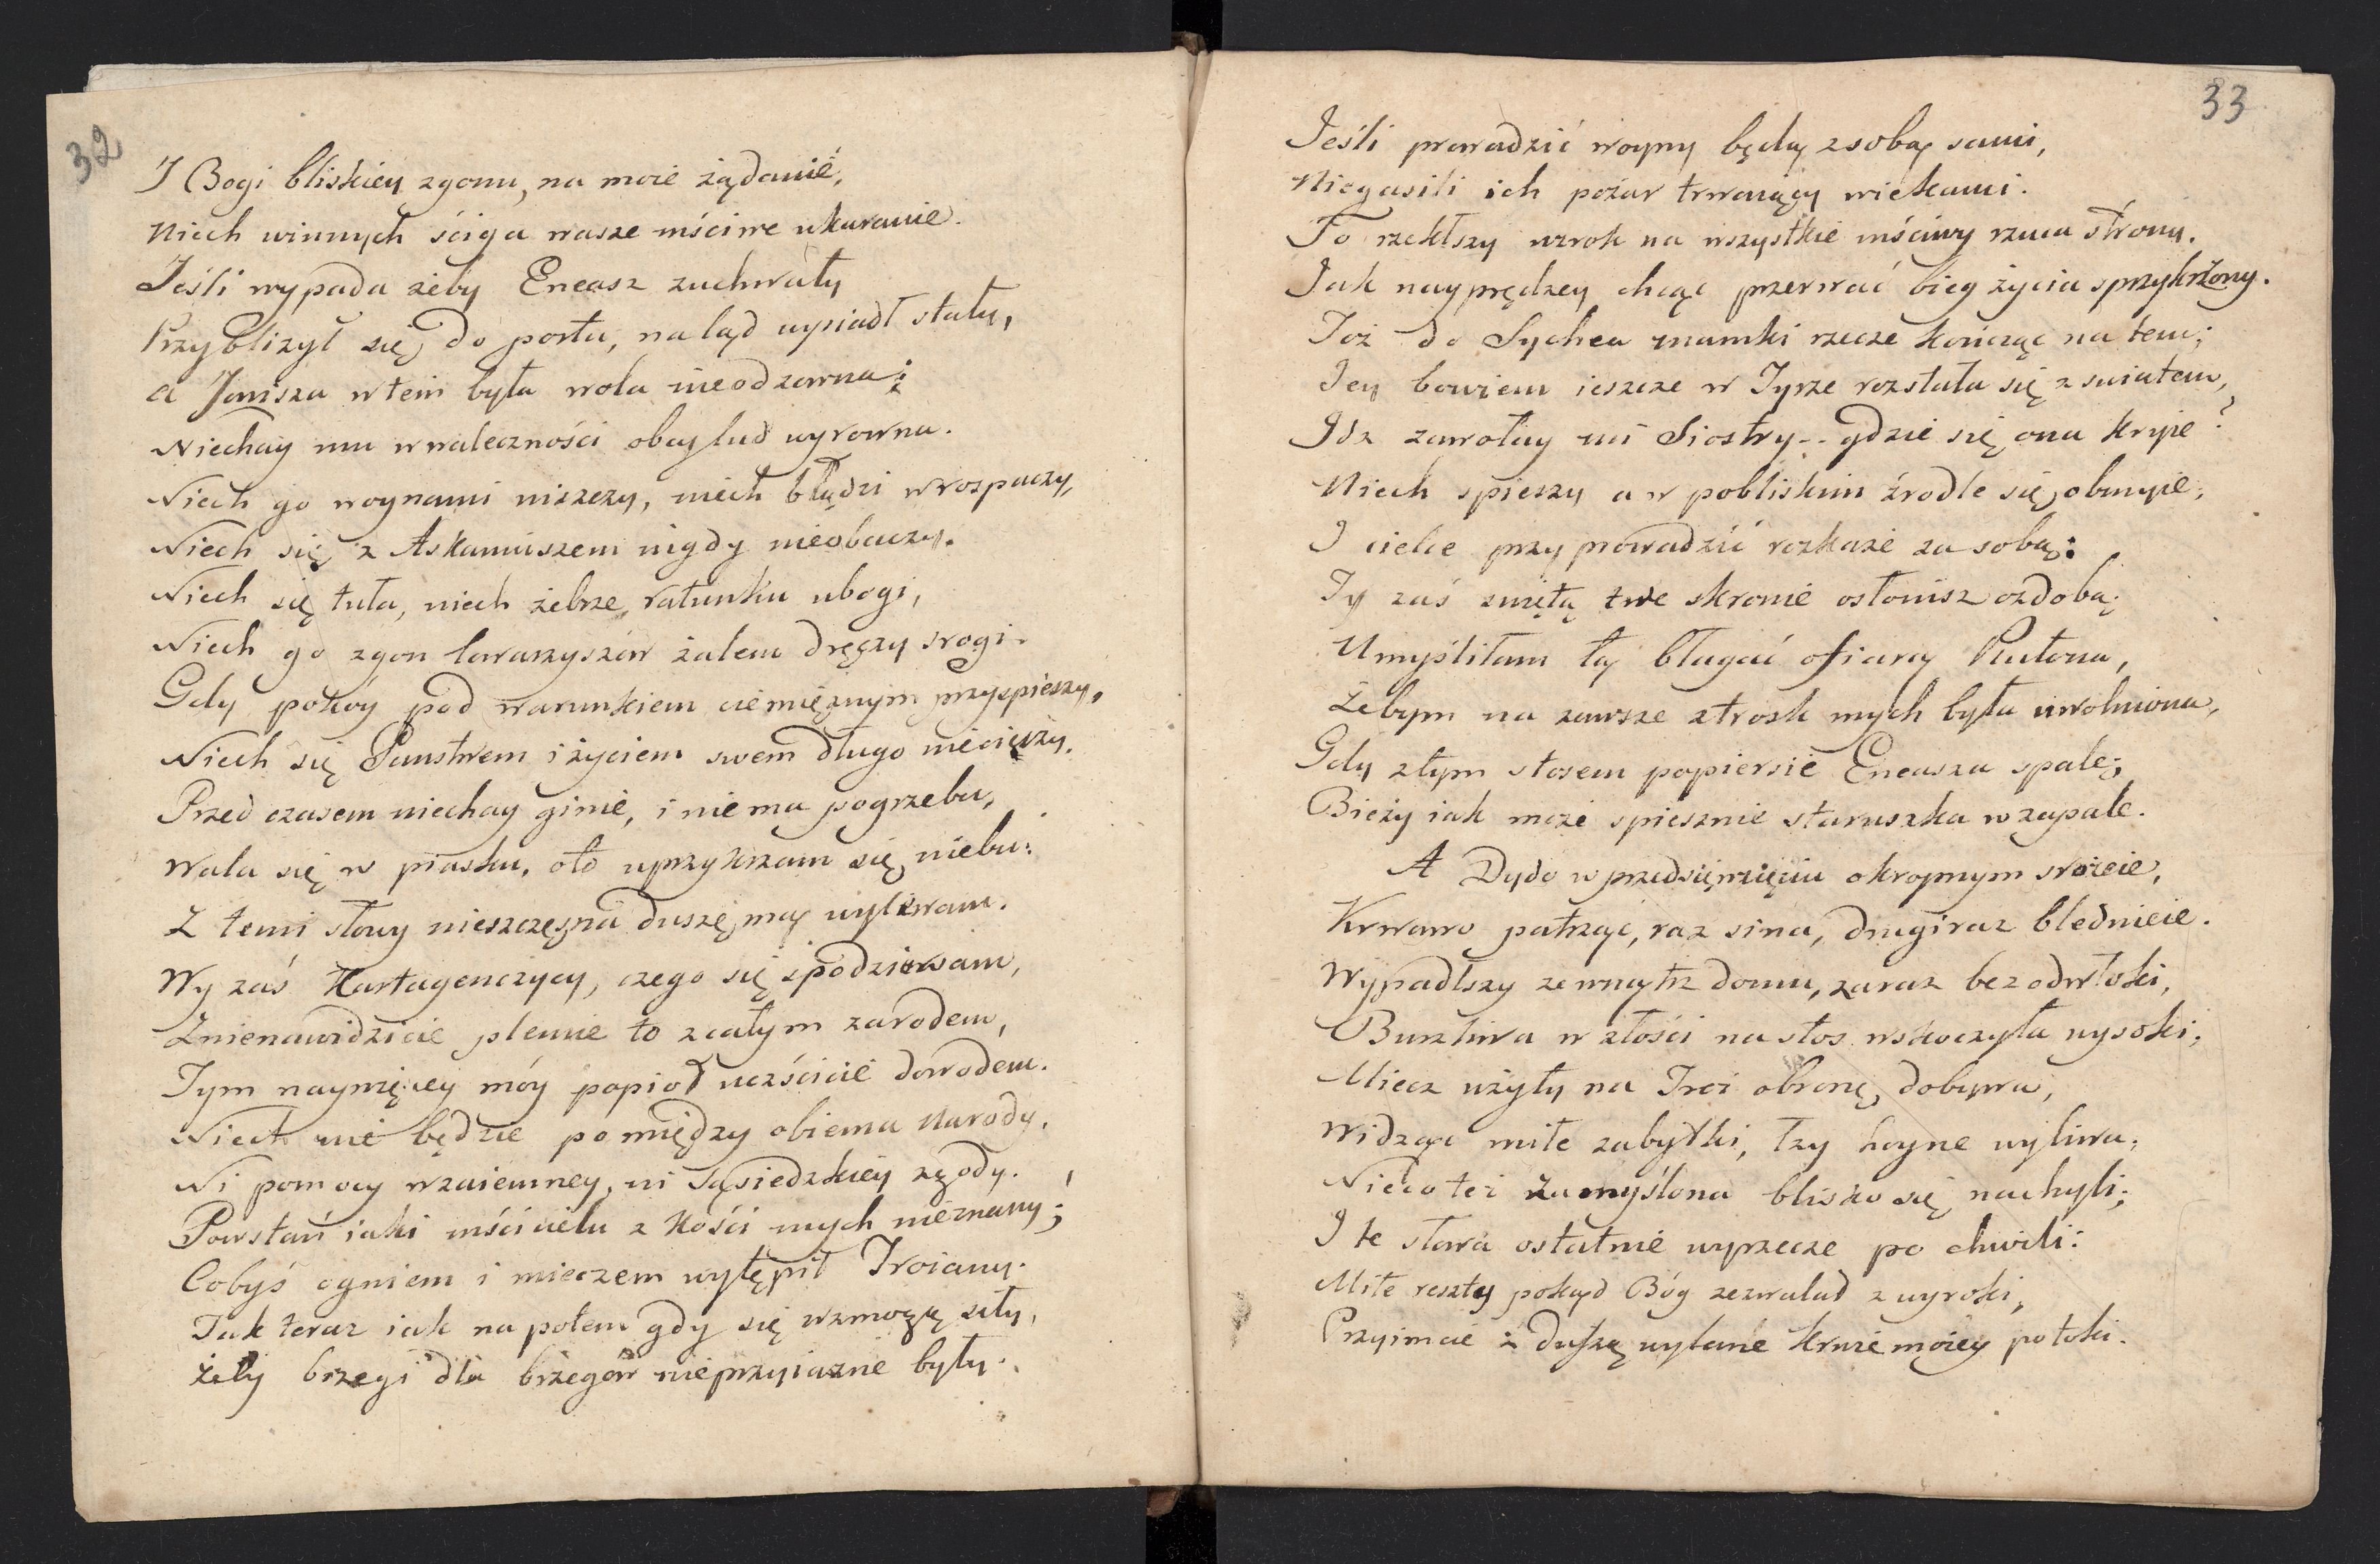 32
I Bogi bliskiey zgonu, na moie żądanie,
Niech winnych ściga wasze mściwe ukaranie.
Jeśli wypada żeby Eneasz zuchwały
Przybliżył się do portu, na ląd wysiadł stały,
A Jowisza w tem była wola nieodzowna;
Niechay mu w waleczności obcy lud wyrowna.
Niech go woynami niszczy, niech błądzi w rospaczy,
Niech się z Askaniuszem nigdy nieobaczy.
Niech się tuła, niech żebrze ratunku ubogi,
Niech go zgon towarzyszów żalem dręczy srogi.
Gdy pokóy pod warunkiem ciemiężnym przyspieszy,
Niech się Panstwem i życiem swem długo niecieszy.
Przed czasem niechay ginie, i niema pogrzebu,
Wala się w piasku, oto uprzykrzam się niebu:
Z temi słowy nieszczęsna duszę mą wylewam.
Wy zaś Kartagenczycy, czego się spodziewam,
Znienawidzicie plemie to z całym zarodem,
Tym naywięcey móy popioł uczścicie dowodem.
Niech nie będzie pomiędzy obiema Narody,
Ni pomocy wzaiemney, ni Sąsiedzkiey zgody.
Powstań iaki mścicielu z kości mych nieznany;
Cobyś ogniem i mieczem wytępił Troiany.
Jak teraz iak napotem gdy się wzmogą siły,
Żeby brzegi dla brzegów nieprzyiazne były.
33
Jeśli prowadzić woyny będą z sobą sami,
Niegasili ich pożar trwaiący wiekami.
To rzekłszy wzrok na wszystkie mściwy rzuca strony.
Jak nayprędzey chcąc przerwać bieg życia sprzykrzony.
Toż do Sychea mamki rzecze kończąc na tem;
Jey bowiem ieszcze w Tyrze rozstała się z swiatem,
Idz zawołay mi Siostry.. gdzie się ona kryie?
Niech spieszy a w pobliskim źrodle się obmyie,
I cielce przyprowadzić rozkaże za sobą:
Ty zaś świętą twe skronie osłonisz ozdobą;
Umyśliłam tą błagać ofiarą Plutona,
Żebym na zawsze z trosk mych była uwolniona,
Gdy z tym stosem popiersie Eneasza spalę;
Bieży iak może spiesznie staruszka w zapale.
A Dydo w przedsięwzięciu okropnym srożeie,
Krwawo patrząc, raz sina, drugi raz blednieie.
Wypadłszy zewnątrz domu, zaraz bez odwłoki,
Burzliwa w złości na stos wskoczyła wysoki;
Miecz użyty na Troi obronę dobywa,
Widząc miłe zabytki, łzy hoyne wyliwa;
Nieco też zamyślona blisko się nachyli;
I te słowa ostatnie wyrzecze po chwili:
Miłe reszty pokąd Bóg zezwalał z wyroki,
Przyimcie z duszą wylane krwie moiey potoki.